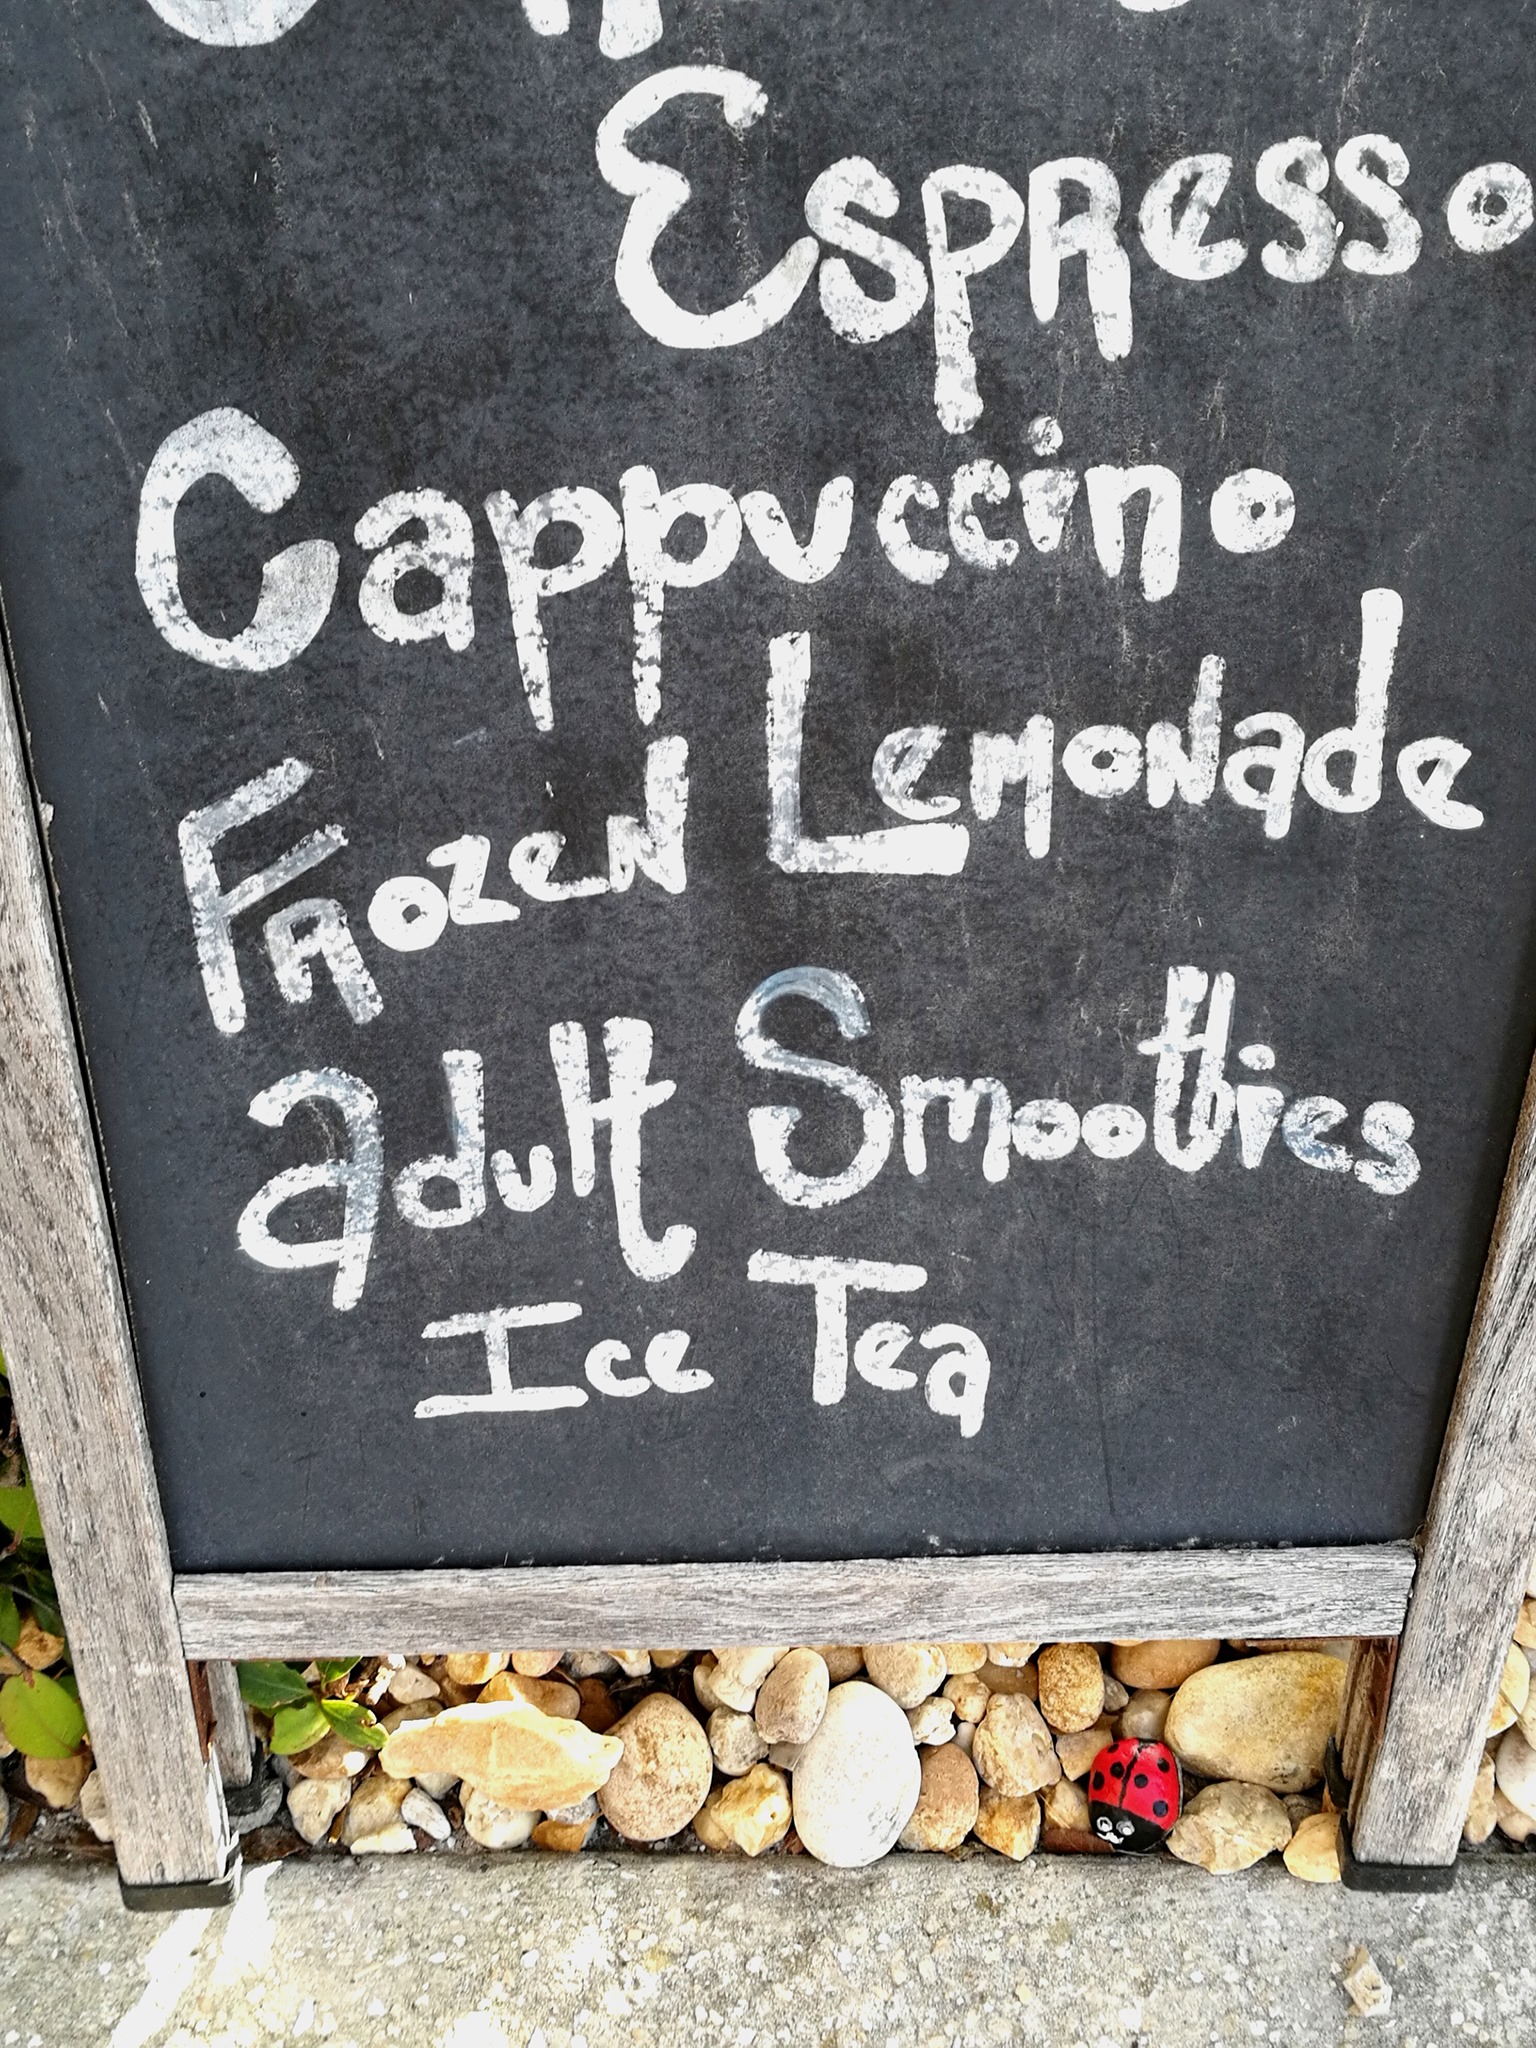 Espresso
Cappuccino
Frozen Lemonade
adult Smoothies
Ice Tea